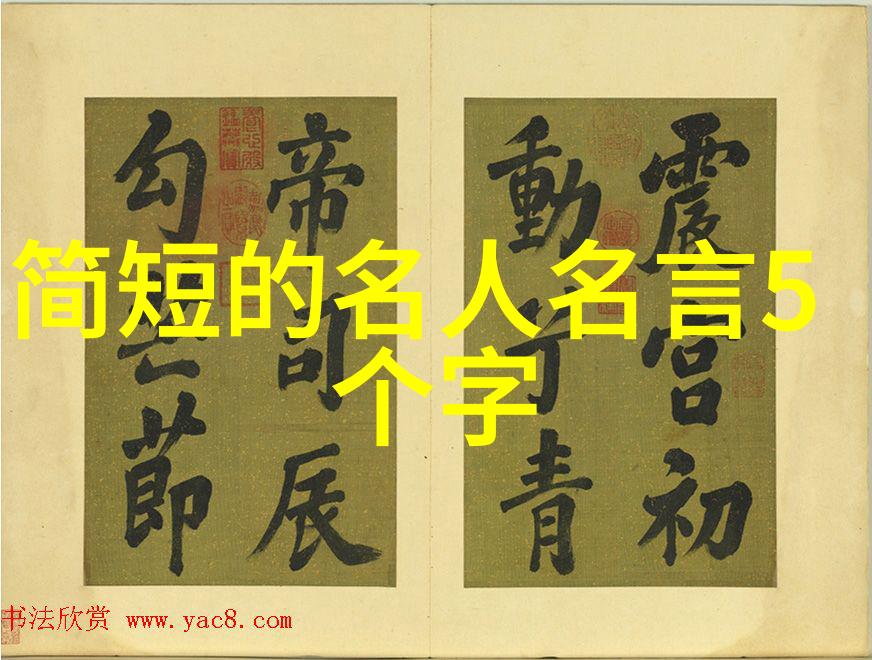 简短的名人名言5
个字
震宫初
動 青
帝司辰
勾 節
书法欣赏 www.yac8.com